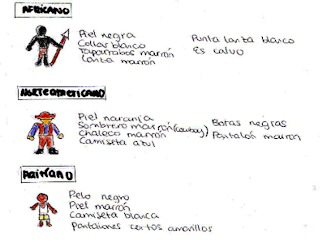 AFRICANO
Piel negra
Collar blanco
Taparrabos marrón
Lanza marrón
Punta lanza blanco
Es calvo
NORTEAMERICANO
Piel naranja
Sombrero marrón (cowboy)
Chaleco marrón
Camiseta azul
Botas negras
Pantalos marron
HAITIANO
Pelo negro
Piel marrón
Camiseta blanca
Pantalones cortos amarillos